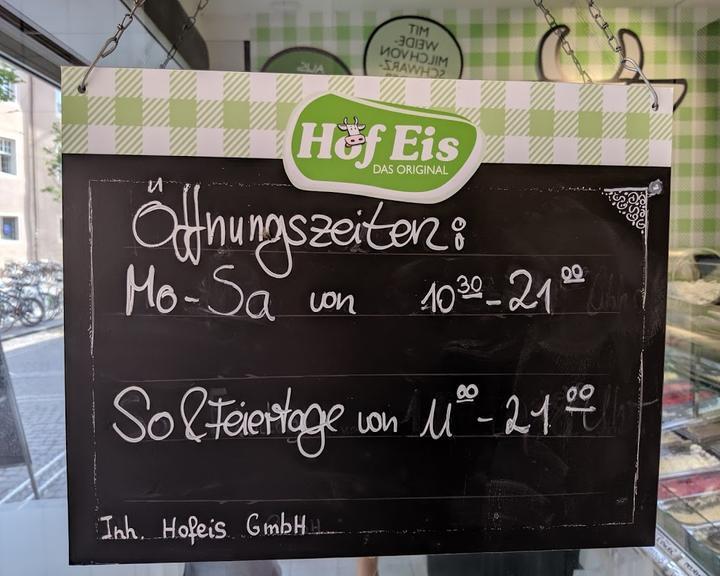 MIT
WEIDE-
MILCH VON
SCHWARZ-
AUS
Hof Eis
DAS ORIGINAL
Öffnungszeiten:
Mo-Sa von 10 30 - 21 00
So & Feiertage von 11 00 - 21 00
Inh. Hofeis GmbH